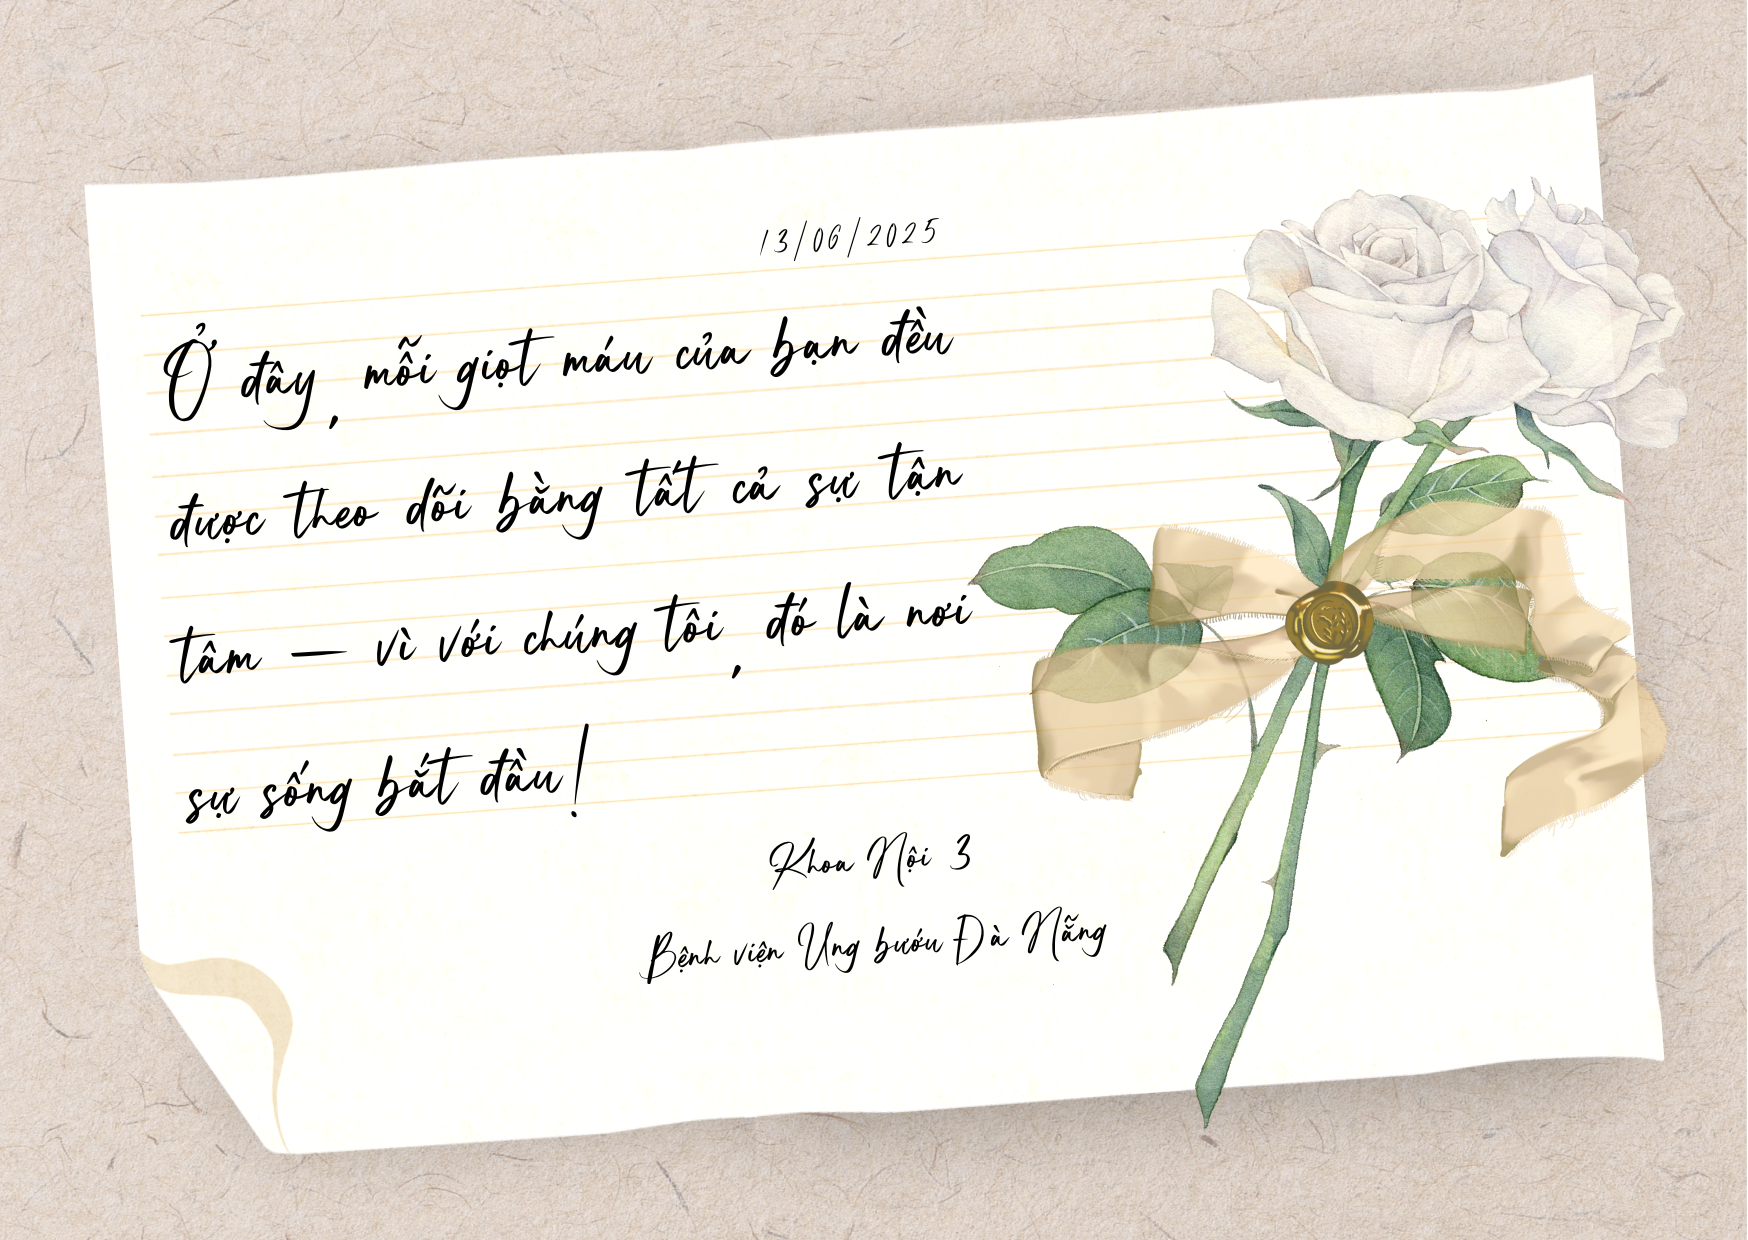 13/06/2025
Ở đây, mỗi giọt máu của bạn đều
được theo dõi bằng tất cả sự tận
tâm — vì với chúng tôi, đó là nơi
sự sống bắt đầu!
Khoa Nội 3
Bệnh viện Ung bướu Đà Nẵng